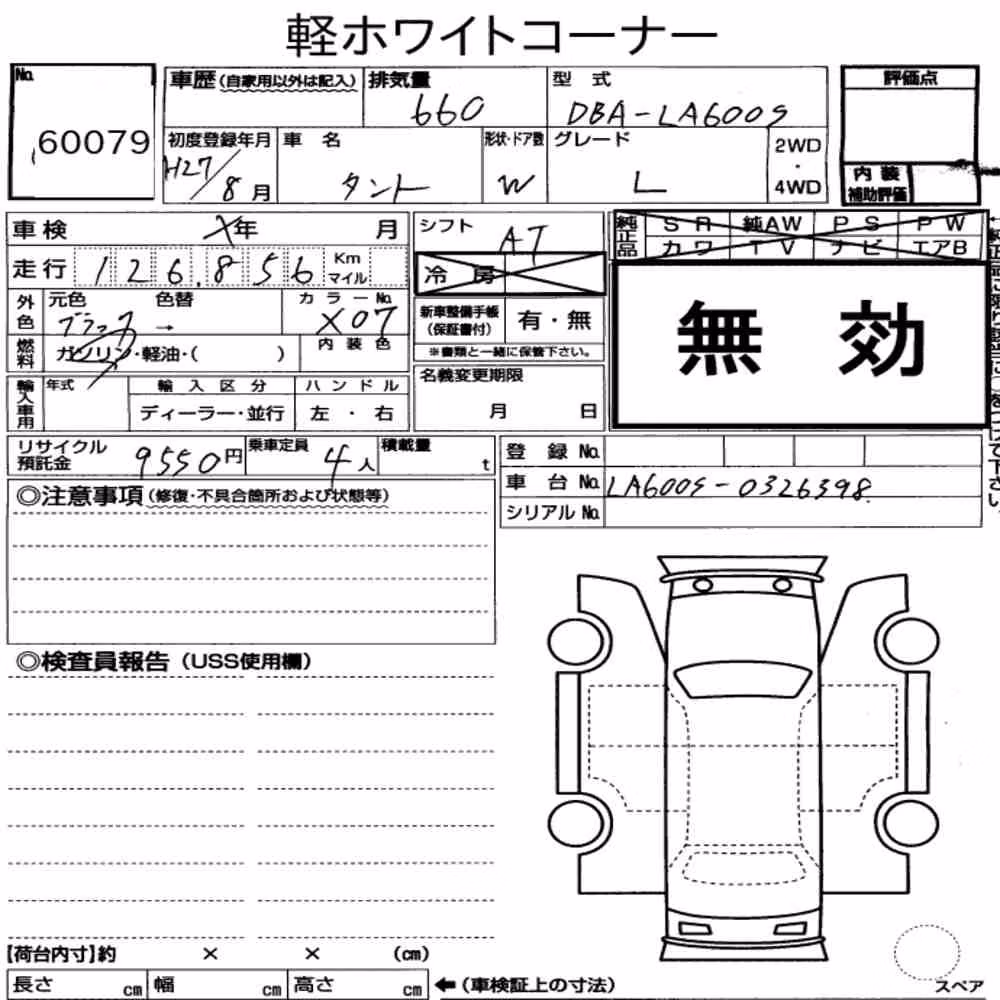 軽ホワイトコーナー
No. 60079
車歴(自家用以外は記入) 排気量 660 型式 DBA-LA600S
評価点
初度登録年月 H27/8月 車名 タント 形状・ドア数 W グレード L 2WD・4WD
内装補助評価
車検 X年 月 シフト AT
純正品 SR 純AW PS PW
カワ TV ナビ エアB
走行 126,856 Km マイル
冷房
無効
外色 元色 ブラック → 色替 カラーNo. X07
内装色
新車整備手帳(保証書付) 有・無
※書類と一緒に保管下さい。
燃料 ガソリン・軽油・( )
輸入車用 年式 輸入区分 ハンドル
ディーラー・並行 左・右
名義変更期限
月 日
リサイクル預託金 9550円 乗車定員 4人 積載量 t
登録No.
車台No. LA600S-0326398
シリアルNo.
◎注意事項(修復・不具合箇所および状態等)
◎検査員報告(USS使用欄)
【荷台内寸】約 × × (cm)
長さ cm 幅 cm 高さ cm ←(車検証上の寸法)
スペア